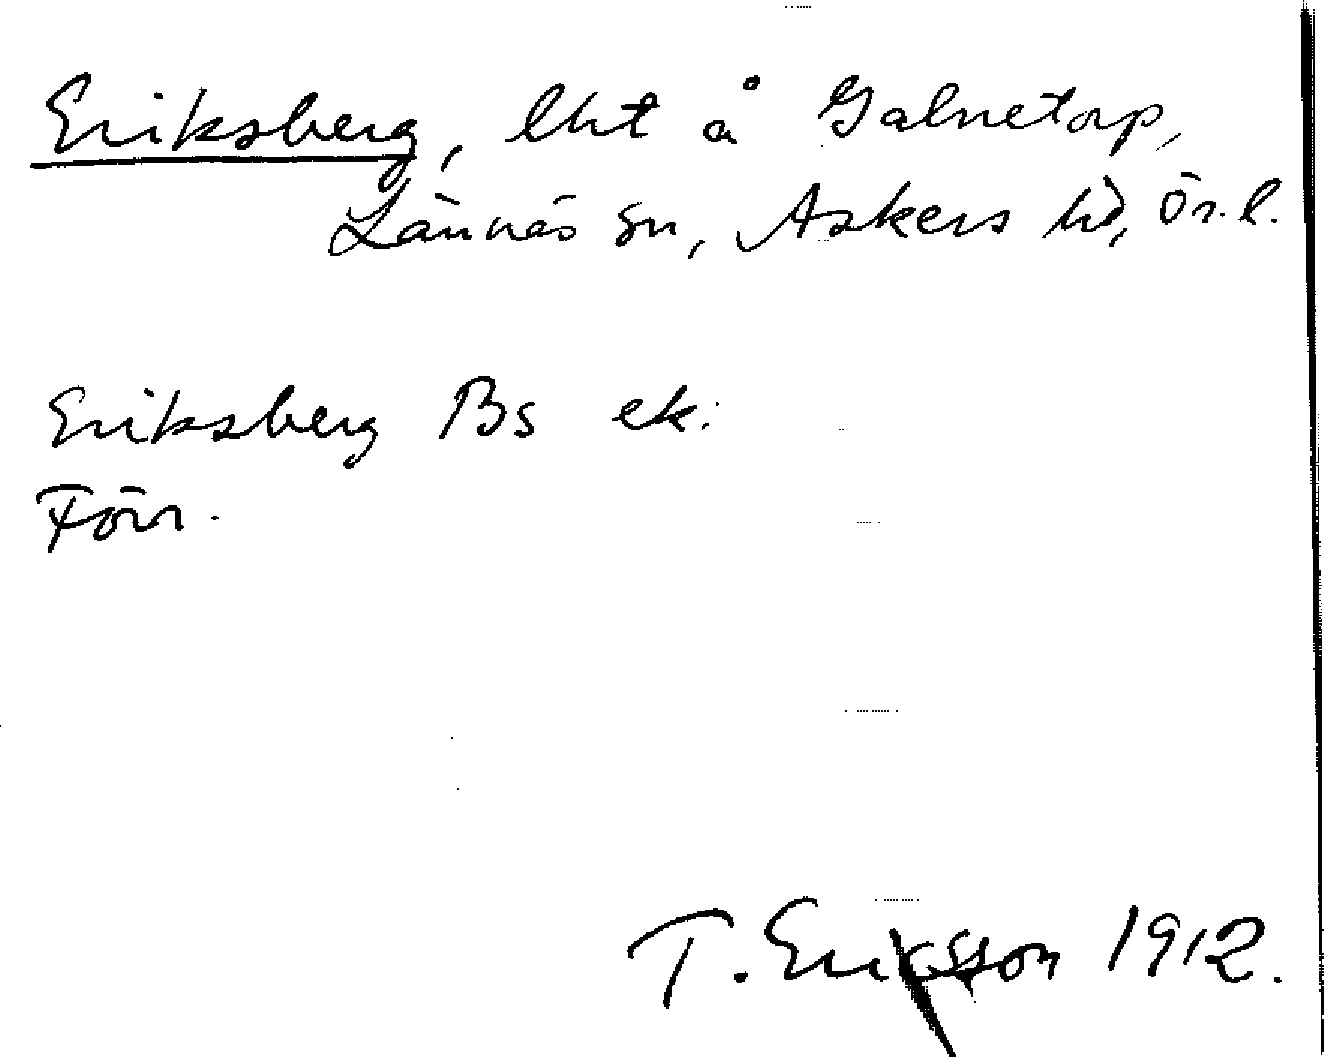 Eriksberg, lht å Galnetorp,
Lännäs sn, Askers hd, Ör. l.
Eriksberg Bs ek.
Förr.
T. Eriksson 1912.